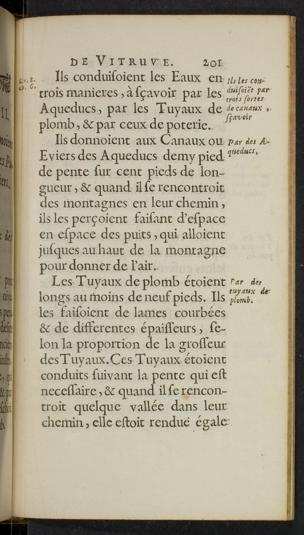 DE VITRUVE. 201
Ils conduisoient les Eaux en
trois manieres, à sçavoir par les
Aqueducs, par les Tuyaux de
plomb, & par ceux de poterie.
Ils les con-
duisoiēt par
trois sortes
de canaux,
sçavoir
Ils donnoient aux Canaux ou
Eviers des Aqueducs demy pied
de pente sur cent pieds de lon-
gueur, & quand il se rencontroit
des montagnes en leur chemin,
ils les perçoient faisant d'espace
en espace des puits, qui alloient
jusques au haut de la montagne
pour donner de l'air.
Par des A-
queducs,
Les Tuyaux de plomb étoient
longs au moins de neuf pieds. Ils
les faisoient de lames courbées
& de differentes épaisseurs, se-
lon la proportion de la grosseur
des Tuyaux. Ces Tuyaux étoient
conduits suivant la pente qui est
necessaire, & quand il se rencon-
troit quelque vallée dans leur
chemin, elle estoit rendue égale
Par des
tuyaux de
plomb.